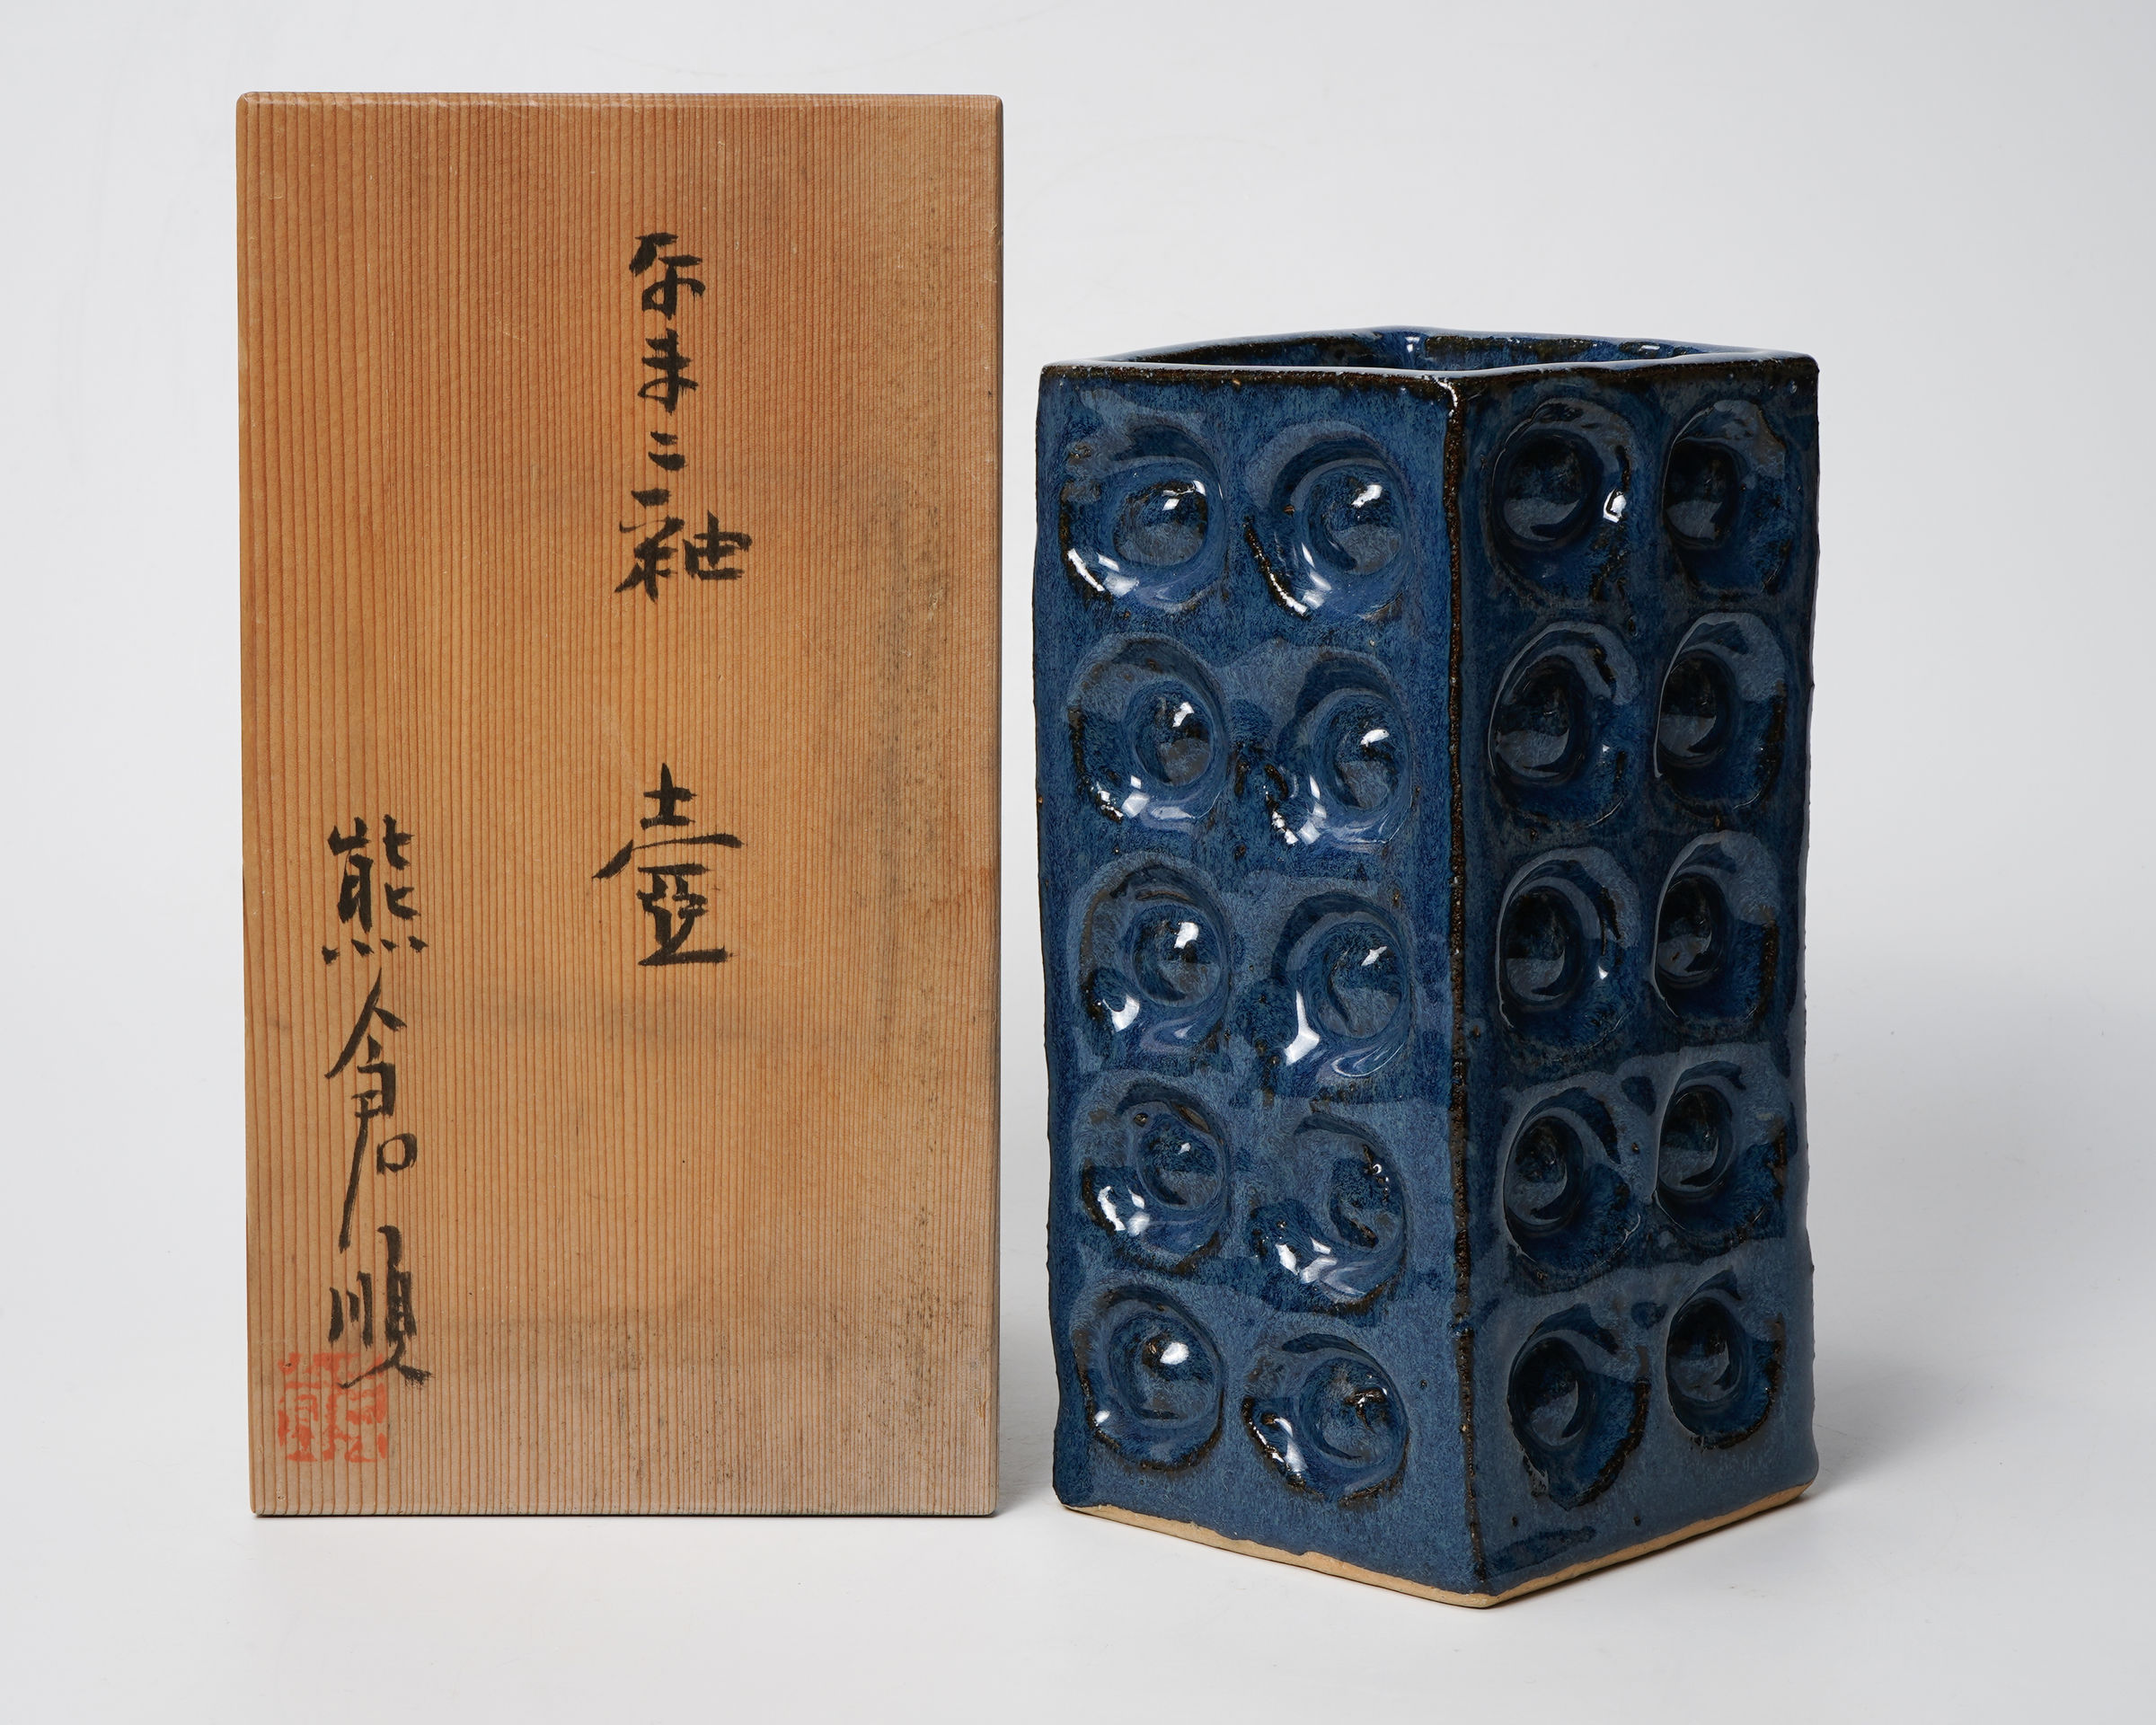 なまこ釉 壷
熊倉順